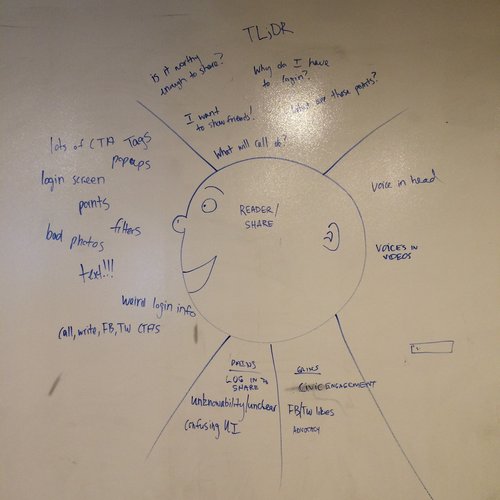 TL;DR
is it worthy
enough to share?
Why do I have
to login?
What are these points?
I want
to show friends!
What will call do?
lots of CTA Tags
popups
login screen
points
filters
bad photos
text!!!
weird login info
call, write, FB, TW CTAs
READER/
SHARE
voice in head
VOICES IN
VIDEOS
PAINS
LOG IN TO
SHARE
unknowability/unclear
confusing UI
GAINS
CIVIC ENGAGEMENT
FB/TW likes
ADVOCACY